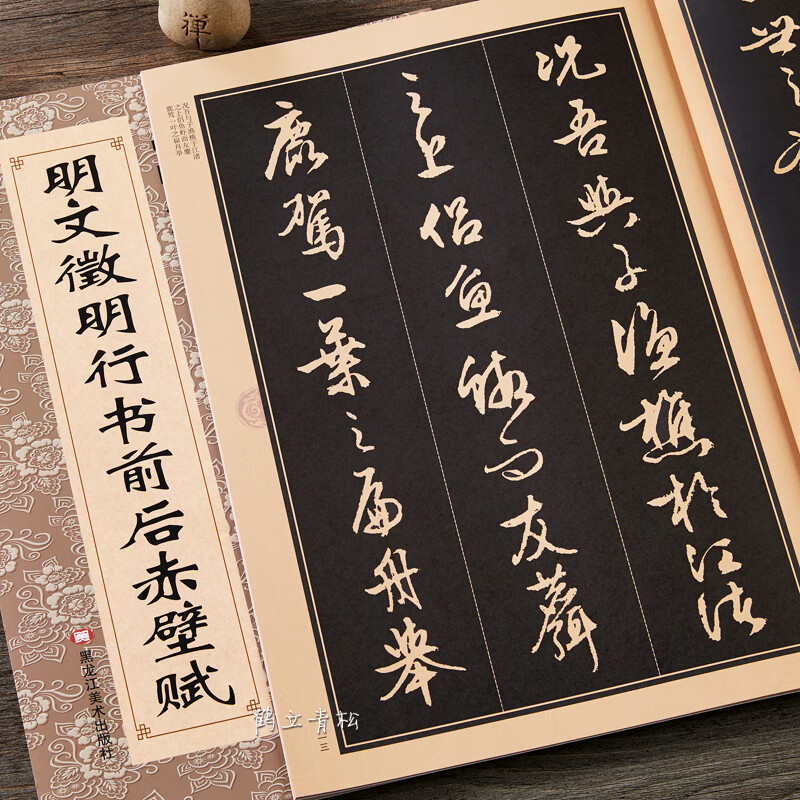 禪
明文徵明行书前后赤壁赋
黑龙江美术出版社
况吾與子漁樵於江渚
之上侣魚蝦而友麋
鹿駕一葉之扁舟舉
况吾与子渔樵于江渚
之上侣鱼虾而友麋
鹿驾一叶之扁舟举
一三
鹤立青松